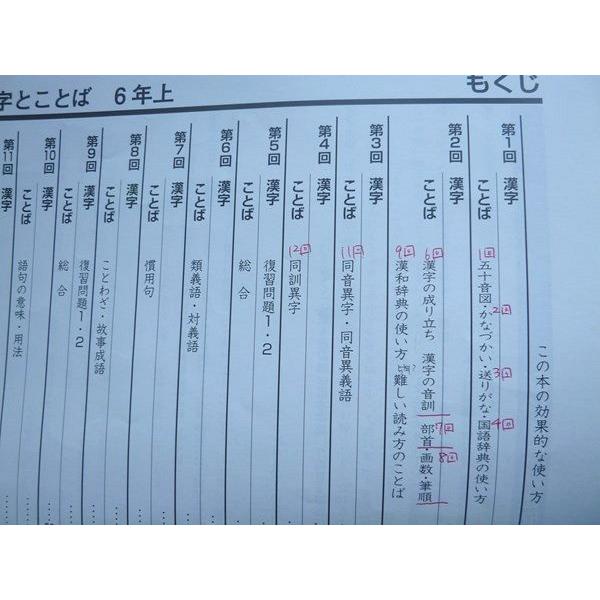 字とことば 6年上
もくじ
この本の効果的な使い方
第1回 漢字
ことば 五十音図・かなづかい・送りがな・国語辞典の使い方
1回
2回
3回
4回
第2回 漢字
ことば 漢字の成り立ち 漢字の音訓 部首・画数・筆順
6回
7回
8回
漢和辞典の使い方 難しい読み方のことば
9回
第3回 漢字
ことば 同音異字・同音異義語
11回
第4回 漢字
ことば 同訓異字
12回
第5回 漢字 復習問題1・2
ことば 総合
第6回 漢字
ことば 類義語・対義語
第7回 漢字
ことば 慣用句
第8回 漢字
ことば ことわざ・故事成語
第9回 漢字 復習問題1・2
ことば 総合
第10回 漢字
ことば 語句の意味・用法
第11回 漢字